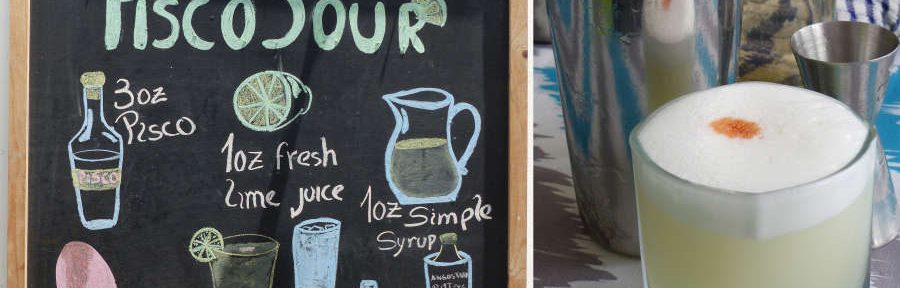 PISCO SOUR
3oz
Pisco
PISCO
1oz fresh
lime juice
1oz Simple
Syrup
ANGOSTURA
BITTERS